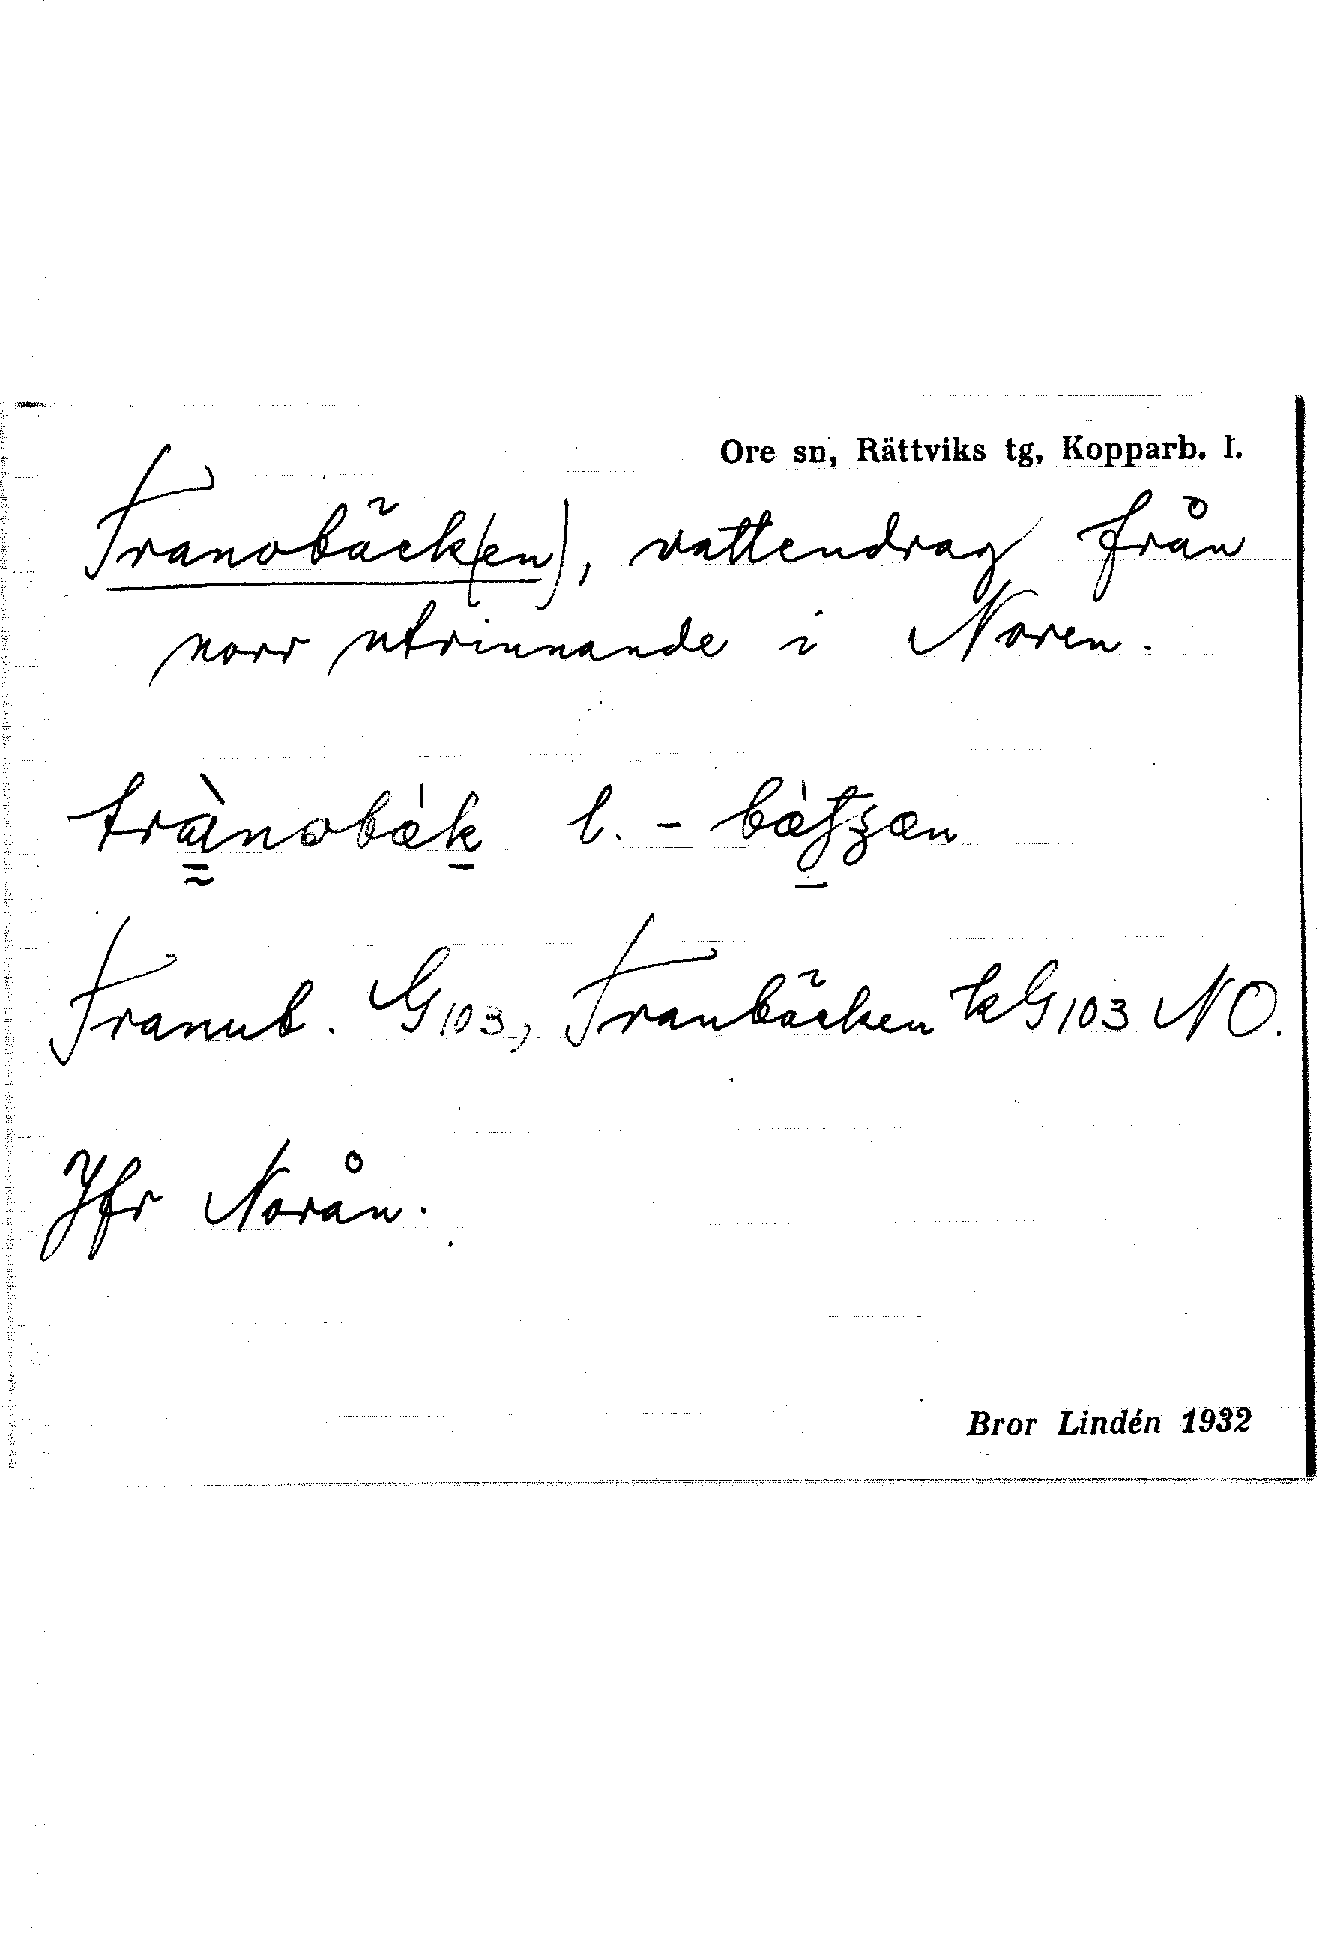 Ore sn, Rättviks tg, Kopparb. l.
Tranobäck(en), vattendrag från
norr utrinnande i Noren.
trànobæ̀k l. - bæ̀tʒæn
Tranub. G103, Tranbäcken kG103 NO.
Jfr Norån.
Bror Lindén 1932